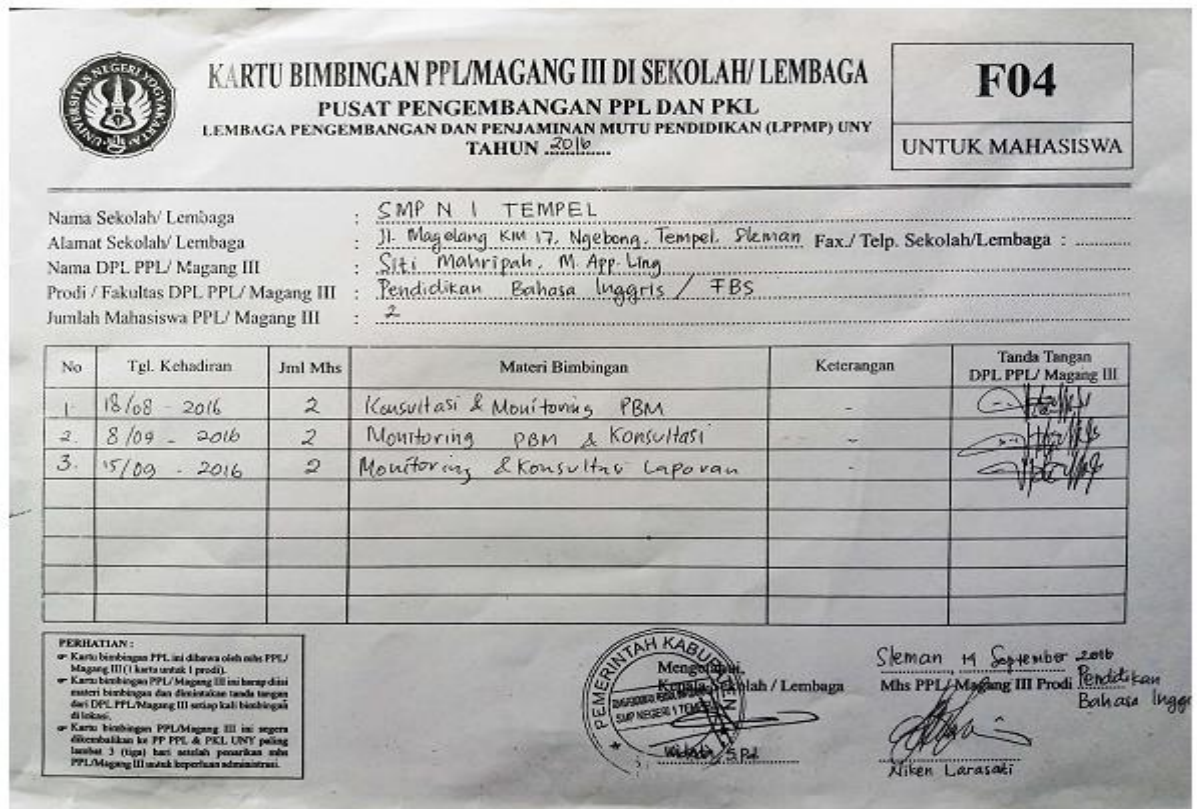 UNIVERSITAS NEGERI YOGYAKARTA
KARTU BIMBINGAN PPL/MAGANG III DI SEKOLAH/ LEMBAGA
PUSAT PENGEMBANGAN PPL DAN PKL
LEMBAGA PENGEMBANGAN DAN PENJAMINAN MUTU PENDIDIKAN (LPPMP) UNY
TAHUN 2016
F04
UNTUK MAHASISWA
Nama Sekolah/ Lembaga : SMP N 1 TEMPEL
Alamat Sekolah/ Lembaga : Jl. Magelang KM 17, Ngebong, Tempel, Sleman Fax./ Telp. Sekolah/Lembaga :
Nama DPL PPL/ Magang III : Siti Mahripah, M. App. Ling
Prodi / Fakultas DPL PPL/ Magang III : Pendidikan Bahasa Inggris / FBS
Jumlah Mahasiswa PPL/ Magang III : 2
No Tgl. Kehadiran Jml Mhs Materi Bimbingan Keterangan Tanda Tangan DPL PPL/ Magang III
1. 18/08 - 2016 2 Konsultasi & Monitoring PBM -
2. 8/09 - 2016 2 Monitoring PBM & Konsultasi -
3. 15/09 - 2016 2 Monitoring & Konsultasi Laporan -
PERHATIAN :
Kartu bimbingan PPL ini dibawa oleh mhs PPL/
Magang III (1 kartu untuk 1 prodi).
Kartu bimbingan PPL/Magang III ini harap diisi
materi bimbingan dan dimintakan tanda tangan
dari DPL PPL/Magang III setiap kali bimbingan
di lokasi.
Kartu bimbingan PPL/Magang III ini segera
dikembalikan ke PP PPL & PKL UNY paling
lambat 3 (tiga) hari setelah penarikan mhs
PPL/Magang III untuk keperluan administrasi.
PEMERINTAH KABUPATEN
SMP NEGERI 1 TEMPEL
Mengetahui,
Kepala Sekolah / Lembaga
S.Pd
Sleman, 14 September 2016
Mhs PPL/ Magang III Prodi Pendidikan
Bahasa Inggr
Niken Larasati